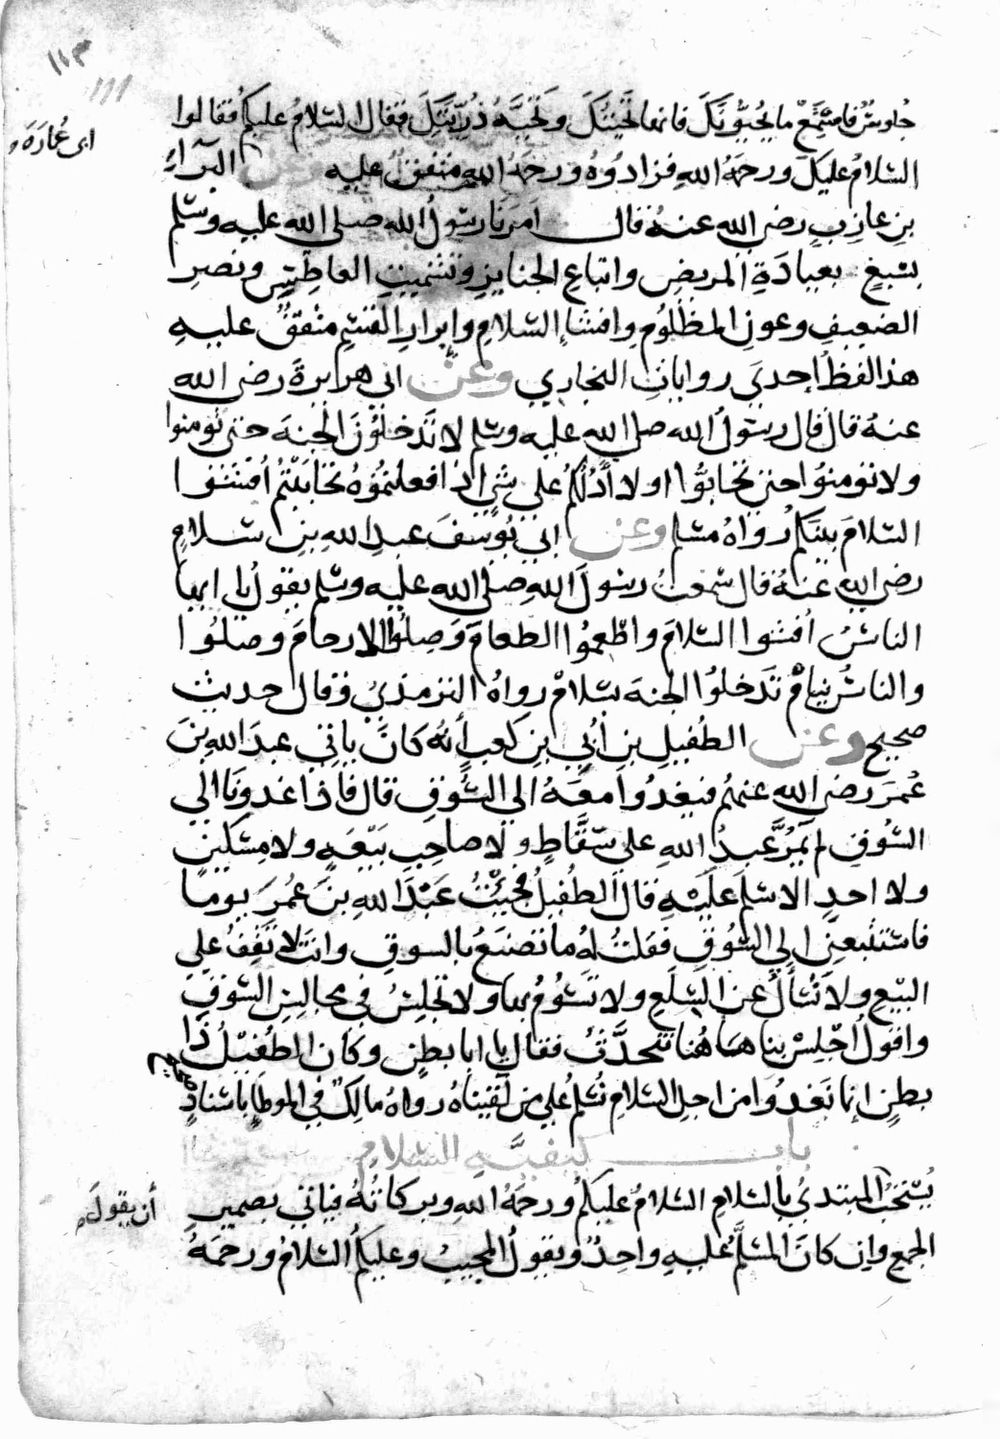 ١١٣
111
جلوس فاستمع ما يحيونك فانها تحيتك وتحية ذريتك فقال السلام عليكم فقالوا
ابى عُمارَة
السلام عليك ورحمة الله فزادوه ورحمة الله متفق عليه وعن البراء
بن عازب رضى الله عنه قال امرنا رسول الله صلى الله عليه وسلم
بسبع بعيادة المريض واتباع الجنايز وتشميت العاطس ونصر
الضعيف وعون المظلوم وافشاء السلام وابرار القسم متفق عليه
هذا لفظ احدى روايات البخاري وعن ابى هريرة رضى الله
عنه قال قال رسول الله صلى الله عليه وسلم لا تدخلون الجنة حتى تومنوا
ولا تومنوا حتى تحابوا اولا أدلكم على شى اذا فعلتموه تحاببتم أفشوا
السلام بينكم رواه مسلم وعن ابى يوسف عبد الله بن سلام
رضى الله عنه قال سمعت رسول الله صلى الله عليه وسلم يقول يا ايها
الناس أفشوا السلام واطعموا الطعام وصلوا الارحام وصلوا
والناس نيام تدخلوا الجنة بسلام رواه الترمذي وقال حديث
صحيح وعن الطفيل بن أبي بن كعب أنه كان ياتي عبد الله بن
عمر رضى الله عنهم فيغدوا معه الى السوق قال فاذا غدونا الى
السوق لم يمر عبد الله على سقاط ولا صاحب بيعة ولا مسكين
ولا احد الا سلم عليه قال الطفيل فجئت عبد الله بن عمر يوما
فاستتبعنى الى السوق فقلت له ما تصنع بالسوق وانت لا تقف على
البيع ولا تسأل عن السلع ولا تسوم بها ولا تجلس فى مجالس السوق
واقول اجلس بنا هاهنا نتحدث فقال يا ابا بطن وكان الطفيل ذا
بطن إنما نغدوا من اجل السلام نسلم على من لقيناه رواه مالك فى الموطا باسناد
صحيح
باب كيفية السلام
يستحب المبتدئ بالسلام السلام عليكم ورحمة الله وبركاته فياتي بضمير
أن يقول
الجمع وان كان المسلم عليه واحد ويقول المجيب وعليكم السلام ورحمة